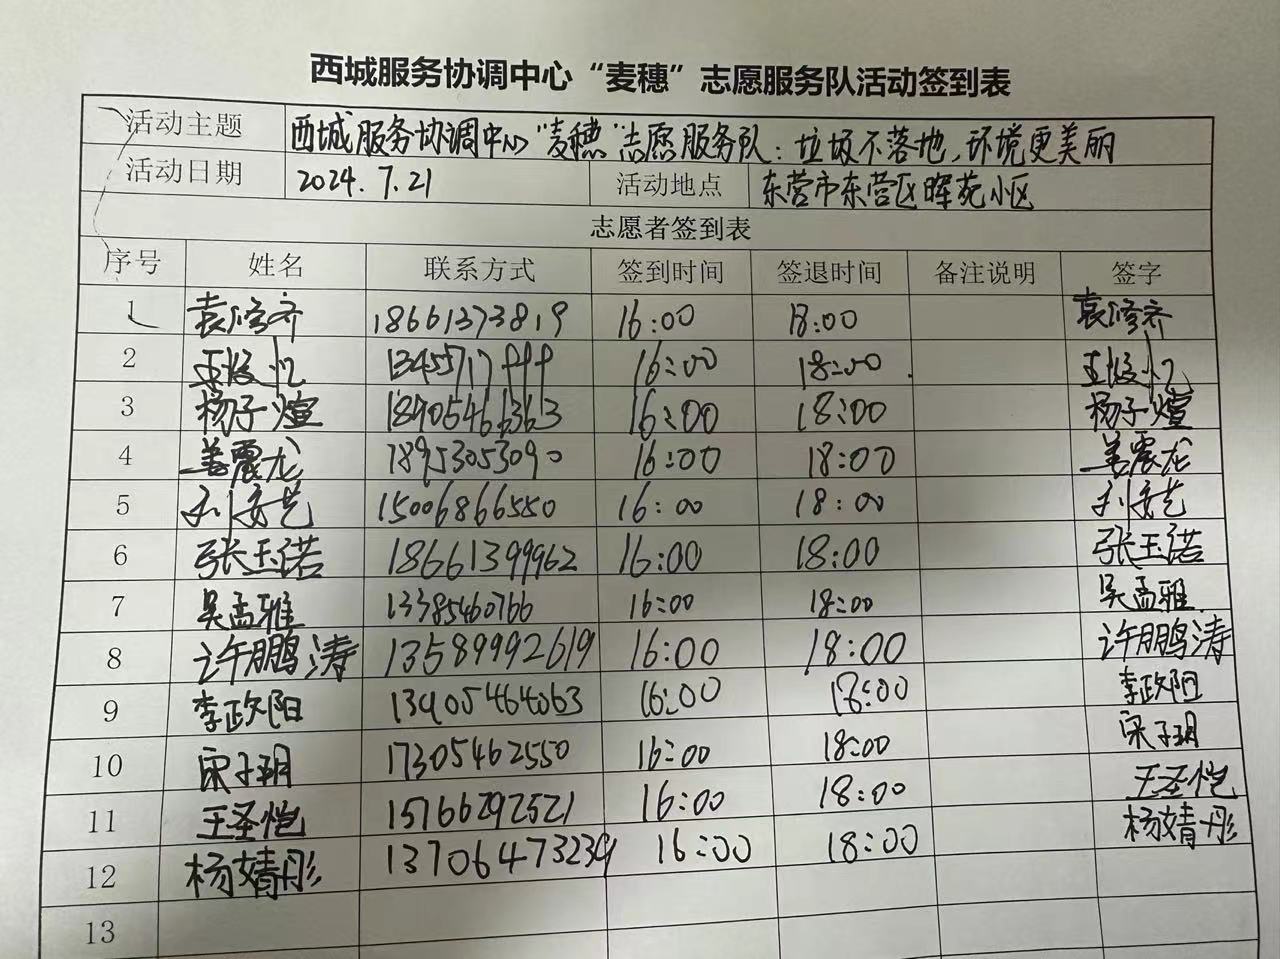 西城服务协调中心“麦穗”志愿服务队活动签到表
活动主题 西城服务协调中心“麦穗”志愿服务队：垃圾不落地，环境更美丽
活动日期 2024.7.21 活动地点 东营市东营区晖苑小区
志愿者签到表
序号 姓名 联系方式 签到时间 签退时间 备注说明 签字
1 袁修齐 18661373819 16:00 18:00 袁修齐
2 13455717 16:00 18:00
3 杨子煊 18905466363 16:00 18:00 杨子煊
4 姜震龙 18953053090 16:00 18:00 姜震龙
5 15006866550 16:00 18:00
6 张玉诺 18661399962 16:00 18:00 张玉诺
7 吴孟雅 13385460766 16:00 18:00 吴孟雅
8 许鹏涛 13589992619 16:00 18:00 许鹏涛
9 李政阳 13905464063 16:00 18:00 李政阳
10 宋子玥 17305462550 16:00 18:00 宋子玥
11 王圣恺 15766292521 16:00 18:00 王圣恺
12 杨婧彤 13706473239 16:00 18:00 杨婧彤
13